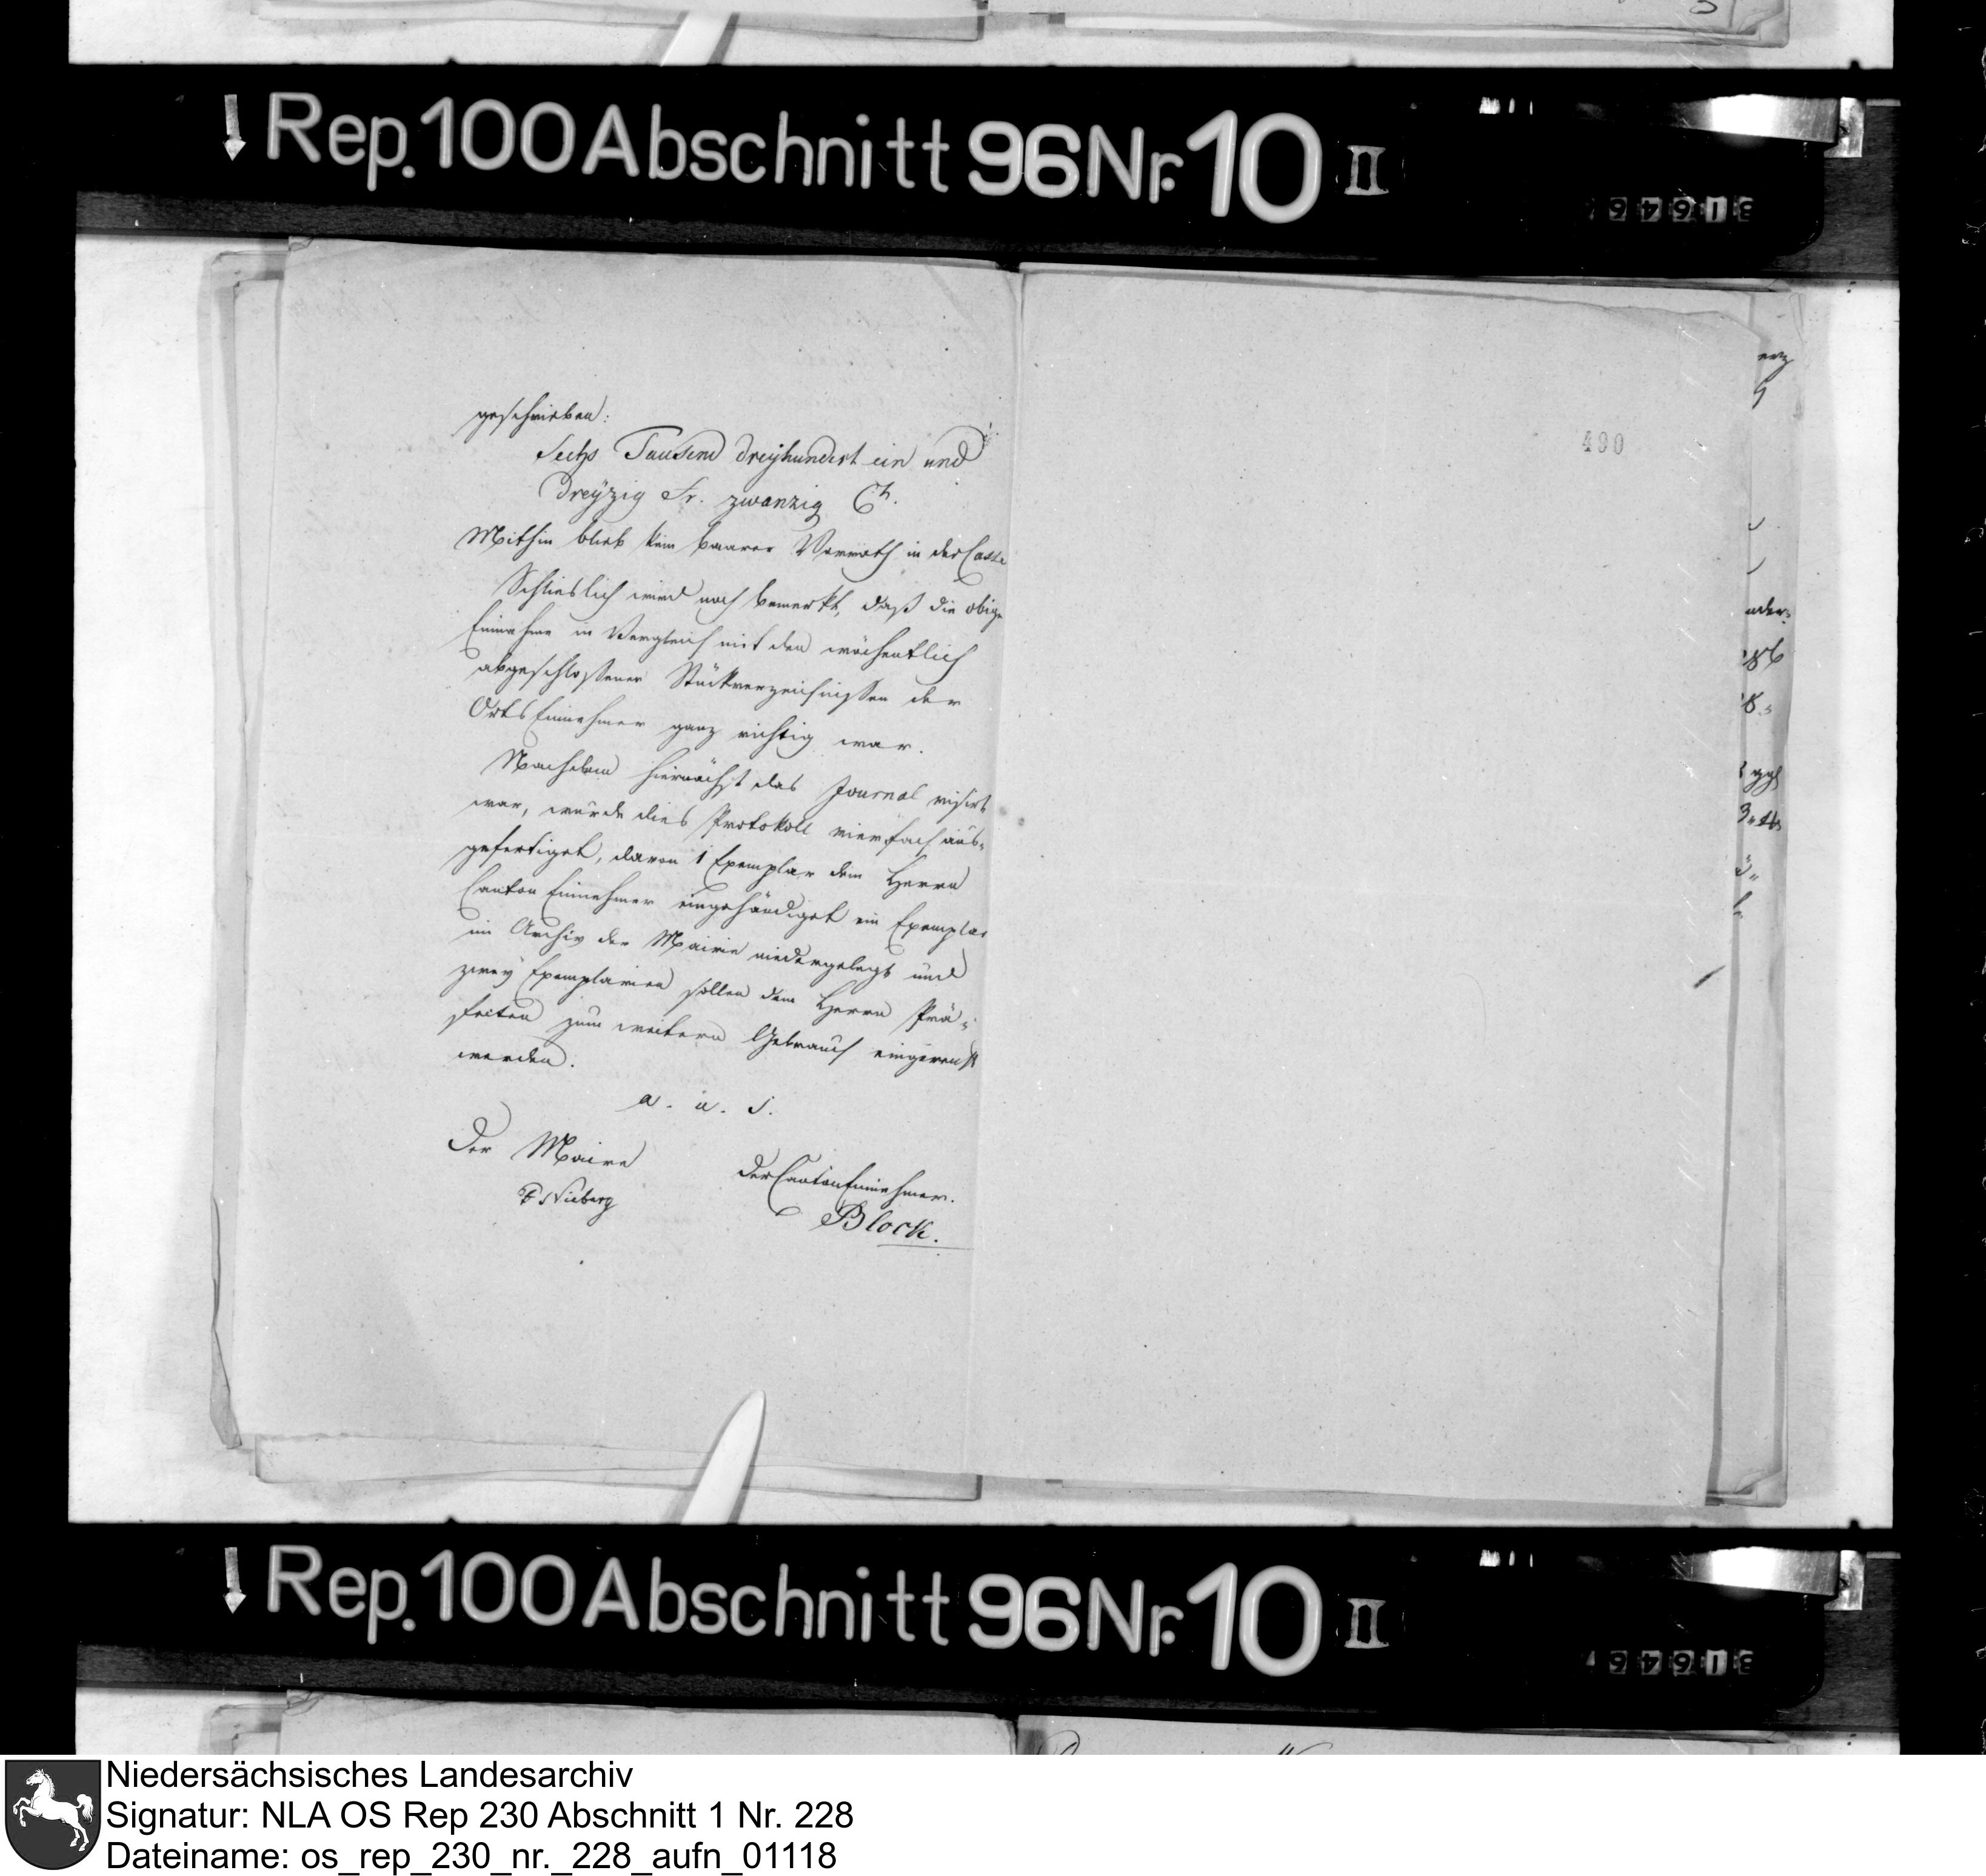 Rep. 100 Abschnitt 96 Nr. 10 II
geschrieben:
Sechs Tausend dreyhundert ein und
dreyzig Fr. zwanzig Ct.
Mithin blieb kein baarer Vorrath in der Casse
Schlieslich wird noch bemerkt, daß die obige
Einnahme in Vergleich mit den wöchentlich
abgeschlossenen Stückverzeichnissen der
Orts Einnehmer ganz richtig war.
Nachdem hiernächst das Journal visirt
war, wurde dies Protokoll vierfach aus-
gefertiget, davon 1 Exemplar dem Herrn
Canton Einnehmer eingehändiget ein Exemplar
im Archiv der Mairie niedergelegt und
zwey Exemplarien sollen dem Herrn Prä-
fecten zum weitern Gebrauch eingereicht
werden.
a. u. s.
Der Maire
Nieberg
Der Canton Einnehmer.
Block.
490
Rep. 100 Abschnitt 96 Nr. 10 II
Niedersächsisches Landesarchiv
Signatur: NLA OS Rep 230 Abschnitt 1 Nr. 228
Dateiname: os_rep_230_nr._228_aufn_01118